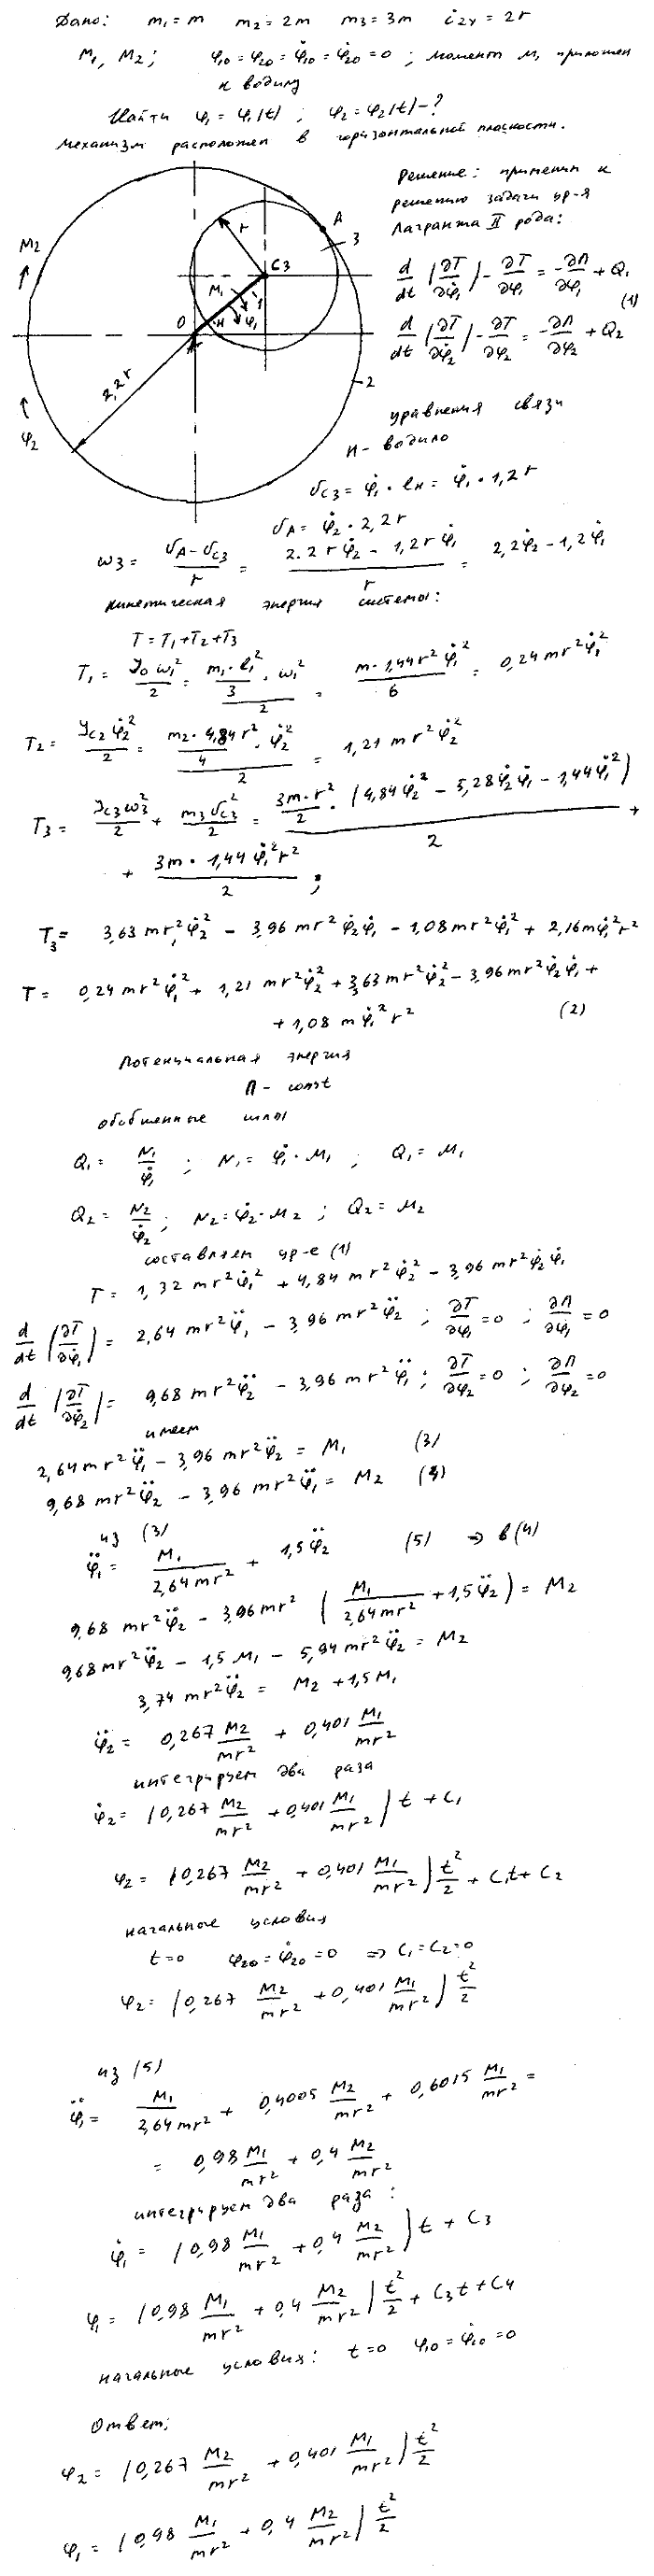 Дано: m₁ = m m₂ = 2m m₃ = 3m i₂ᵧ = 2r
M₁, M₂; φ₁₀ = φ₂₀ = φ̇₁₀ = φ̇₂₀ = 0; момент M₁ приложен
к водилу
Найти φ₁ = φ₁(t); φ₂ = φ₂(t) - ?
Механизм расположен в горизонтальной плоскости.
Решение: применим к
решению задачи ур-я
Лагранжа II рода:
d/dt (∂T/∂φ̇₁) - ∂T/∂φ₁ = -∂П/∂φ₁ + Q₁
(1)
d/dt (∂T/∂φ̇₂) - ∂T/∂φ₂ = -∂П/∂φ₂ + Q₂
A
r
3
M₂
C₃
M₁
1
O
H
φ₁
2,2r
2
φ₂
уравнения связи
H - водило
υC₃ = φ̇₁ · lн = φ̇₁ · 1,2r
υA = φ̇₂ · 2,2r
ω₃ = (υA - υC₃)/r = (2.2rφ̇₂ - 1,2rφ̇₁)/r = 2,2φ̇₂ - 1,2φ̇₁
кинетическая энергия системы:
T = T₁ + T₂ + T₃
T₁ = J₀ω₁²/2 = (m₁·l₁²/3 · ω₁²)/2 = m·1,44r²φ̇₁²/6 = 0,24mr²φ̇₁²
T₂ = JC₂φ̇₂²/2 = (m₂·4,84r²/4 · φ̇₂²)/2 = 1,21mr²φ̇₂²
T₃ = JC₃ω₃²/2 + m₃υC₃²/2 = (3m·r²/2 · (4,84φ̇₂² - 5,28φ̇₂φ̇₁ - 1,44φ̇₁²))/2 +
+ 3m·1,44φ̇₁²r²/2;
T₃ = 3,63mr²φ̇₂² - 3,96mr²φ̇₂φ̇₁ - 1,08mr²φ̇₁² + 2,16mφ̇₁²r²
T = 0,24mr²φ̇₁² + 1,21mr²φ̇₂² + 3,63mr²φ̇₂² - 3,96mr²φ̇₂φ̇₁ +
+ 1,08mφ̇₁²r² (2)
Потенциальная энергия
П - const
обобщенные силы
Q₁ = N₁/φ̇₁; N₁ = φ̇₁·M₁; Q₁ = M₁
Q₂ = N₂/φ̇₂; N₂ = φ̇₂·M₂; Q₂ = M₂
составляем ур-е (1)
T = 1,32mr²φ̇₁² + 4,84mr²φ̇₂² - 3,96mr²φ̇₂φ̇₁
d/dt (∂T/∂φ̇₁) = 2,64mr²φ̈₁ - 3,96mr²φ̈₂; ∂T/∂φ₁ = 0; ∂П/∂φ₁ = 0
d/dt (∂T/∂φ̇₂) = 9,68mr²φ̈₂ - 3,96mr²φ̈₁; ∂T/∂φ₂ = 0; ∂П/∂φ₂ = 0
имеем
2,64mr²φ̈₁ - 3,96mr²φ̈₂ = M₁ (3)
9,68mr²φ̈₂ - 3,96mr²φ̈₁ = M₂ (4)
из (3)
φ̈₁ = M₁/2,64mr² + 1,5φ̈₂ (5) → в (4)
9,68mr²φ̈₂ - 3,96mr² (M₁/2,64mr² + 1,5φ̈₂) = M₂
9,68mr²φ̈₂ - 1,5M₁ - 5,94mr²φ̈₂ = M₂
3,74mr²φ̈₂ = M₂ + 1,5M₁
φ̈₂ = 0,267 M₂/mr² + 0,401 M₁/mr²
интегрируем два раза
φ̇₂ = (0,267 M₂/mr² + 0,401 M₁/mr²) t + C₁
φ₂ = (0,267 M₂/mr² + 0,401 M₁/mr²) t²/2 + C₁t + C₂
начальные условия
t=0 φ₂₀ = φ̇₂₀ = 0 ⇒ C₁ = C₂ = 0
φ₂ = (0,267 M₂/mr² + 0,401 M₁/mr²) t²/2
из (5)
φ̈₁ = M₁/2,64mr² + 0,4005 M₂/mr² + 0,6015 M₁/mr² =
= 0,98 M₁/mr² + 0,4 M₂/mr²
интегрируем два раза:
φ̇₁ = (0,98 M₁/mr² + 0,4 M₂/mr²) t + C₃
φ₁ = (0,98 M₁/mr² + 0,4 M₂/mr²) t²/2 + C₃t + C₄
начальные условия: t=0 φ₁₀ = φ̇₁₀ = 0
Ответ:
φ₂ = (0,267 M₂/mr² + 0,401 M₁/mr²) t²/2
φ₁ = (0,98 M₁/mr² + 0,4 M₂/mr²) t²/2